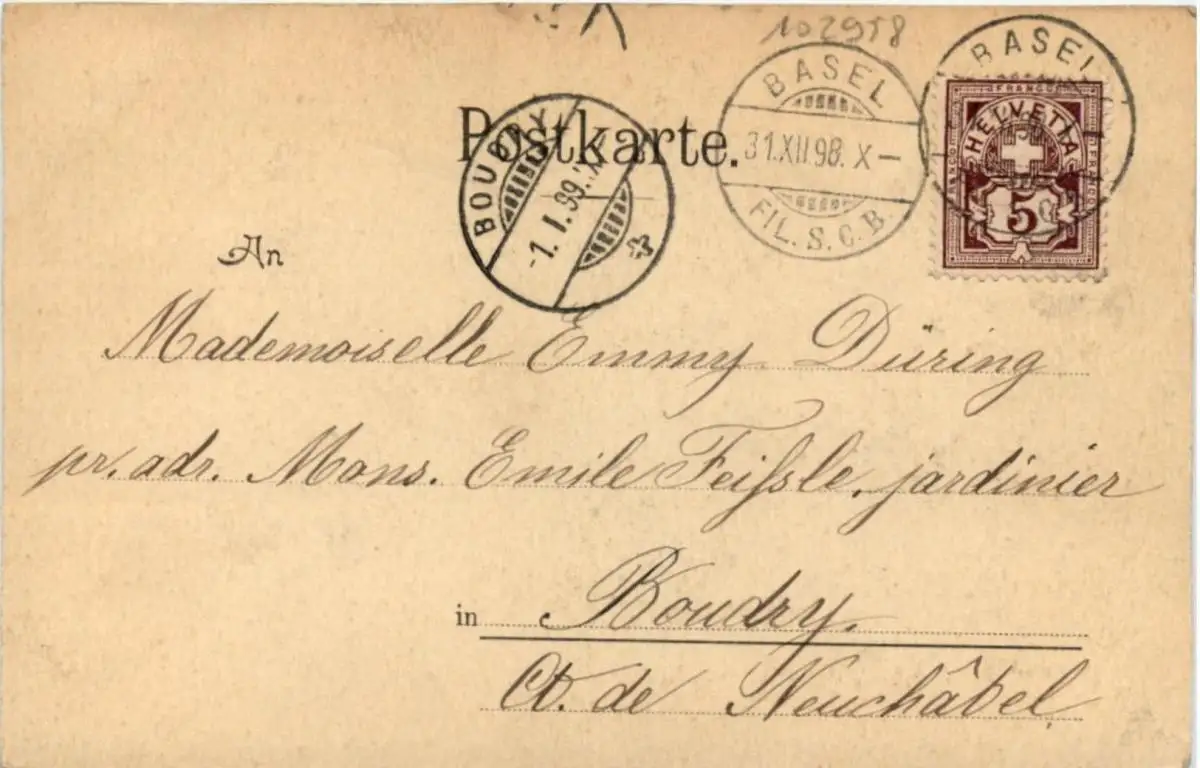 102958
Postkarte.
BASEL
31.XII.98. X–
FIL. S.C.B
BASEL
FRANCO
HELVETIA
5
BOUDRY
-1. I. 99.
An
Mademoiselle Emmy Düring
pr. adr. Mons. Emile Feifsle, jardinier
in Boudry.
Ct. de Neuchâbel